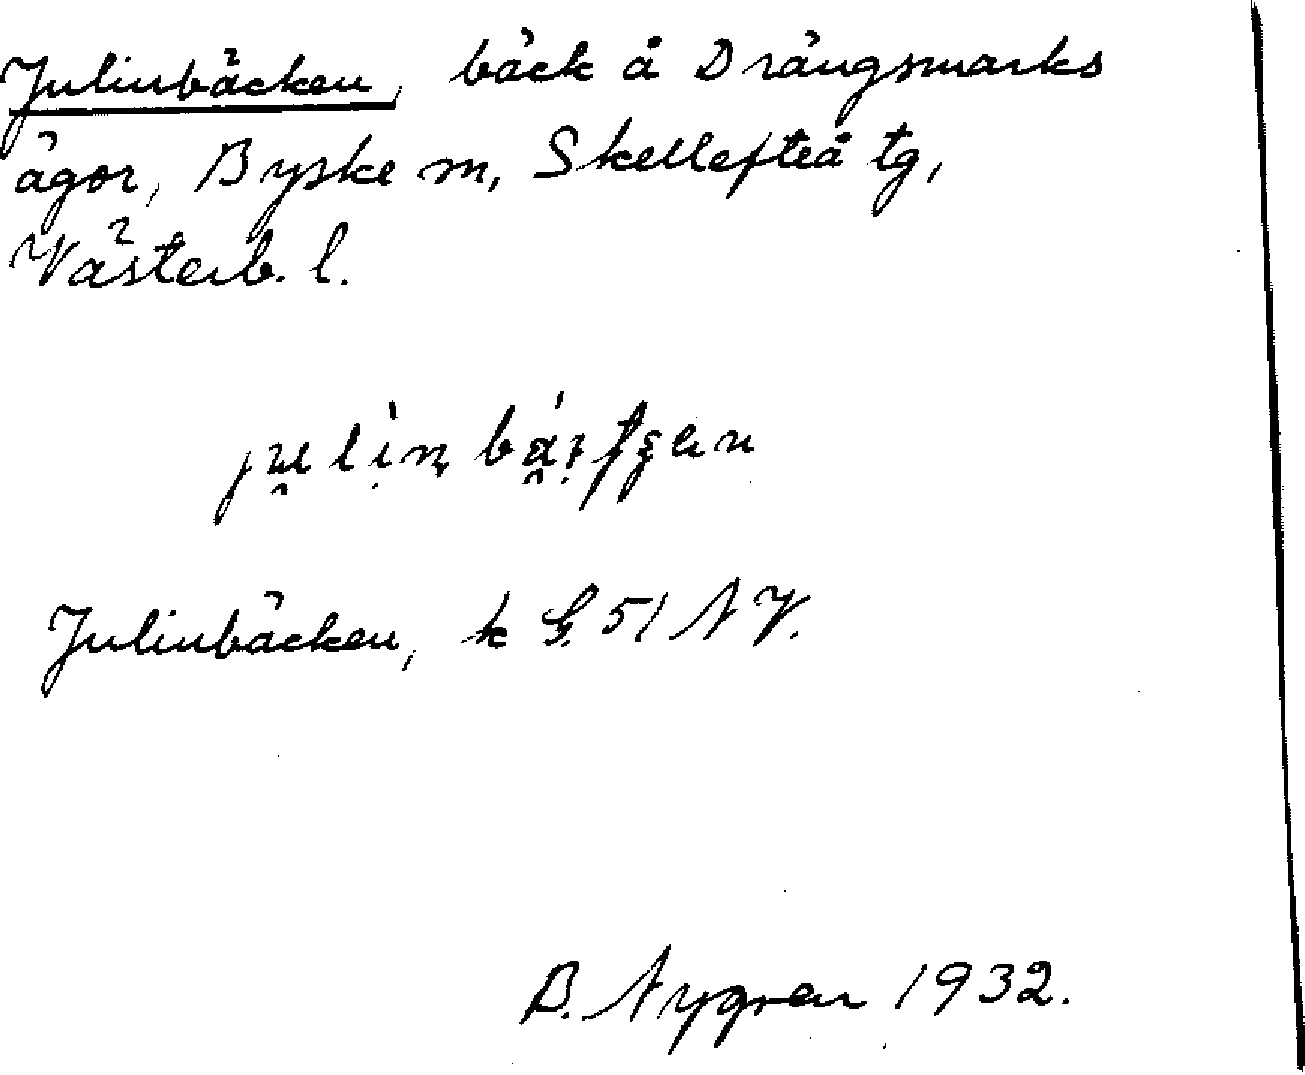 Julinbäcken, bäck å Drängsmarks
ägor, Byske sn, Skellefteå tg,
Västerb. l.
Julinbäcken, k G. 51 N V.
B. Nygren 1932.